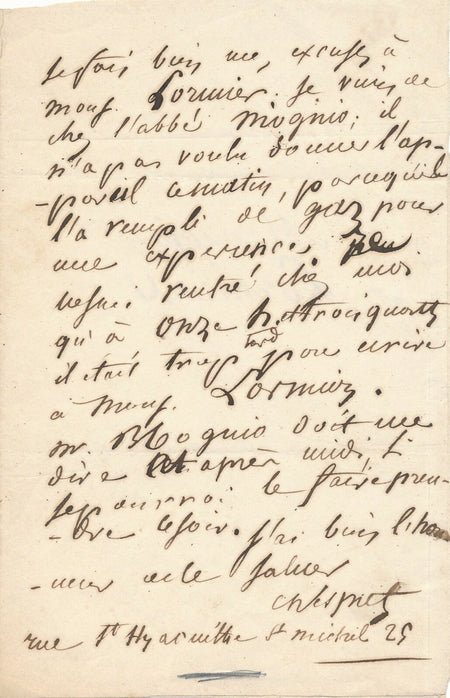 je fais bien me, excuser à
mons. Lormier. je viens de
chez l'abbé Mognio; il
n'a pas voulu donner l'ap-
-pareil ce matin, parcequ'il
l'a rempli de gaz pour
une experience
ne suis rentré chez moi
qu'à onze h. et trois quarts
il était trop tard pour ecrire
à Mons. Lormier.
mr. Mognio doit me
dire après midi, si
je pourrai le faire pren-
-dre ce soir. j'ai bien l'hon
-neur de le saluer

rue St Hyacinthe St michel 25